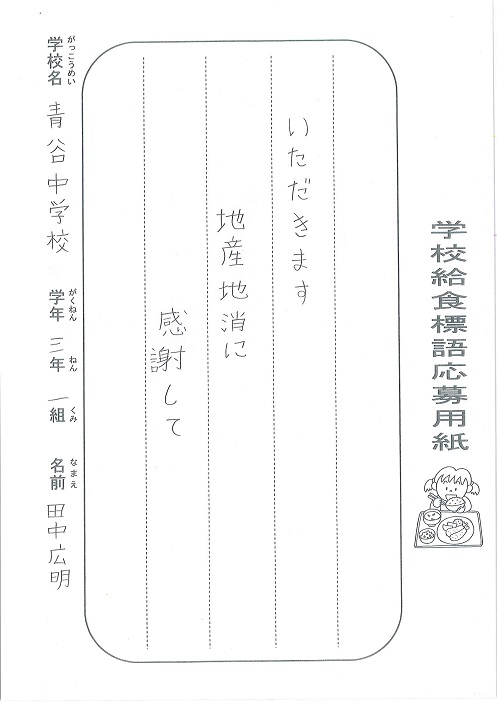 学校給食標語応募用紙
いただきます
地産地消に
感謝して
学校名 青谷中学校 学年 三年 一組 名前 田中広明
がっこうめい がくねん ねん くみ なまえ